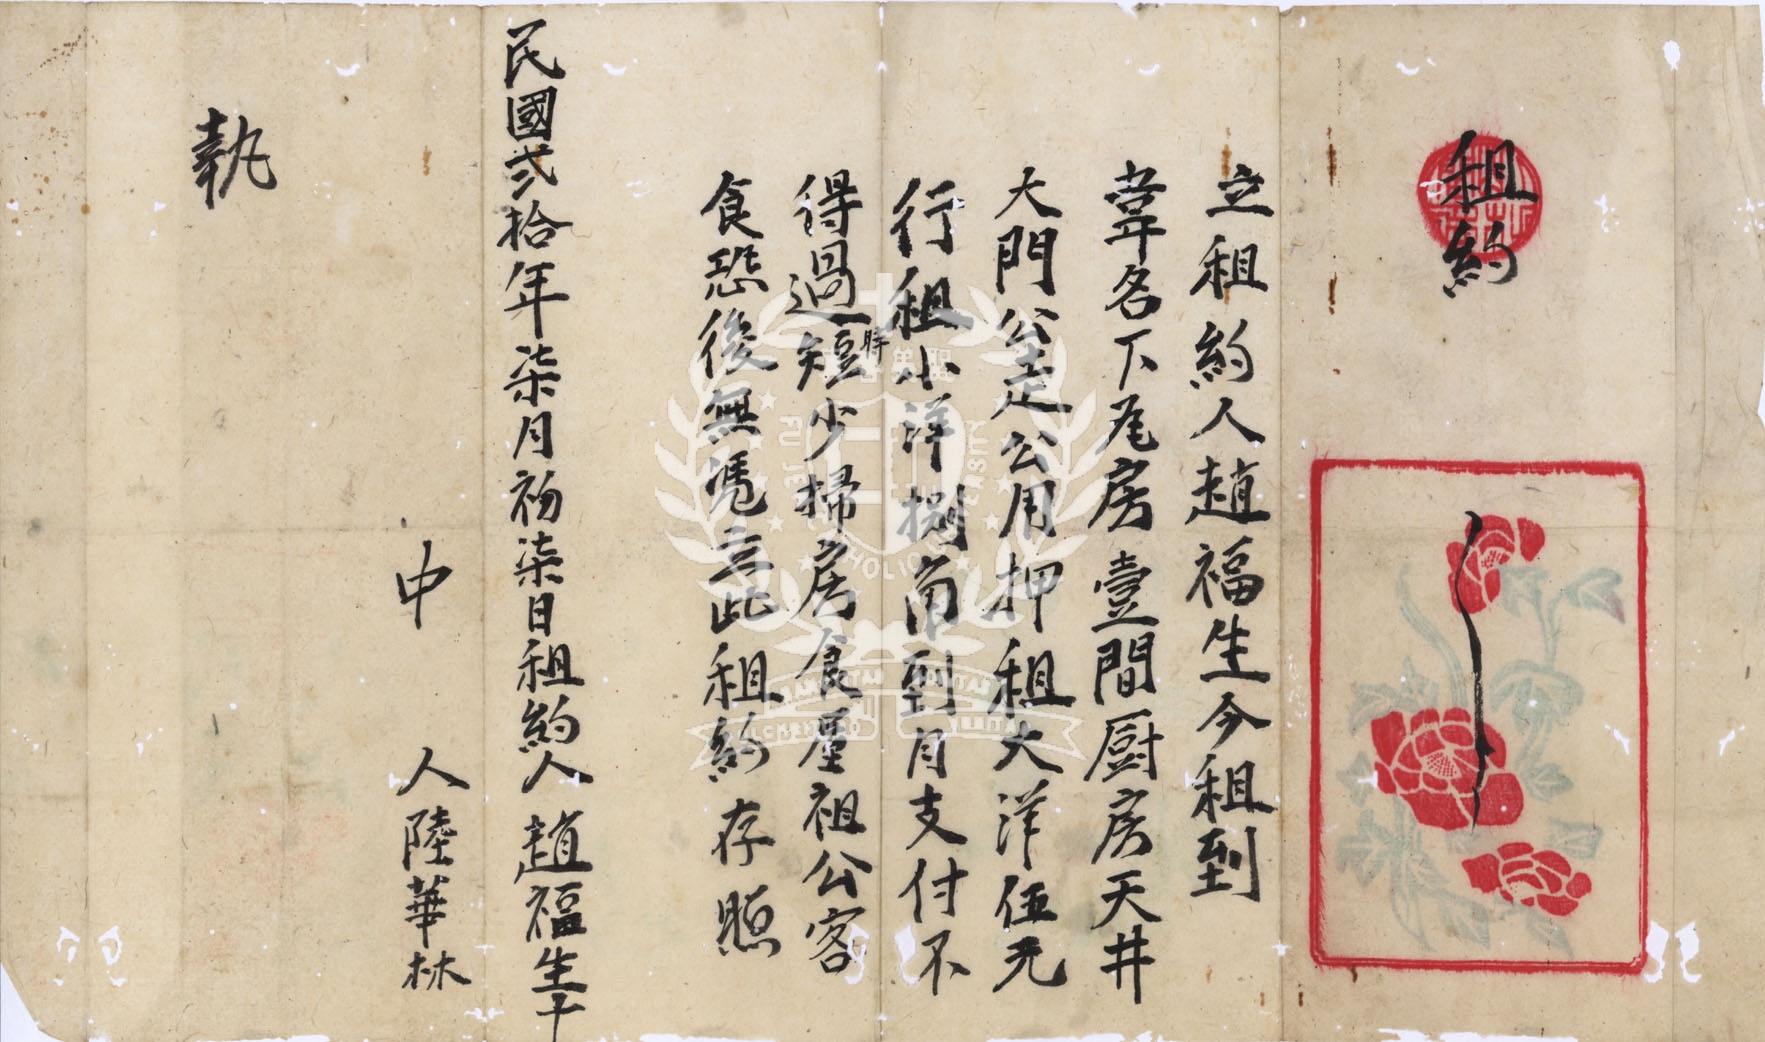 租約
立租約人趙福生今租到
韋名下尾房壹間厨房天井
大門公走公用押租大洋伍元
行租小洋捌角到月支付不
得過時短少掃房食屋祖公客
食恐後無憑立此租約存照
民國弍拾年柒月初柒日租約人趙福生十
中人陸華林
執